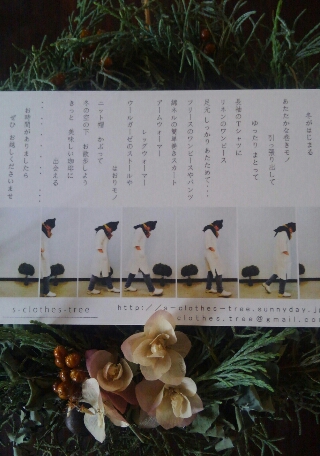 冬がはじまる
あたたかな巻きモノ
引っ張り出して
ゆったり まとって
長袖のTシャツに
リネンのワンピース
足元 しっかりあたためて・・・
フリースのワンピースやパンツ
綿ネルの簡単巻きスカート
アームウォーマー
レッグウォーマー
ウールガーゼのストールや
はおりモノ
ニット帽 かぶって
冬の空の下 お散歩しよう
きっと 美味しい珈琲に
出会える
お時間がありましたら
ぜひ お越しくださいませ
s-clothes-tree
http://s-clothes-tree.sunnyday.j
clothes.tree@gmail.com